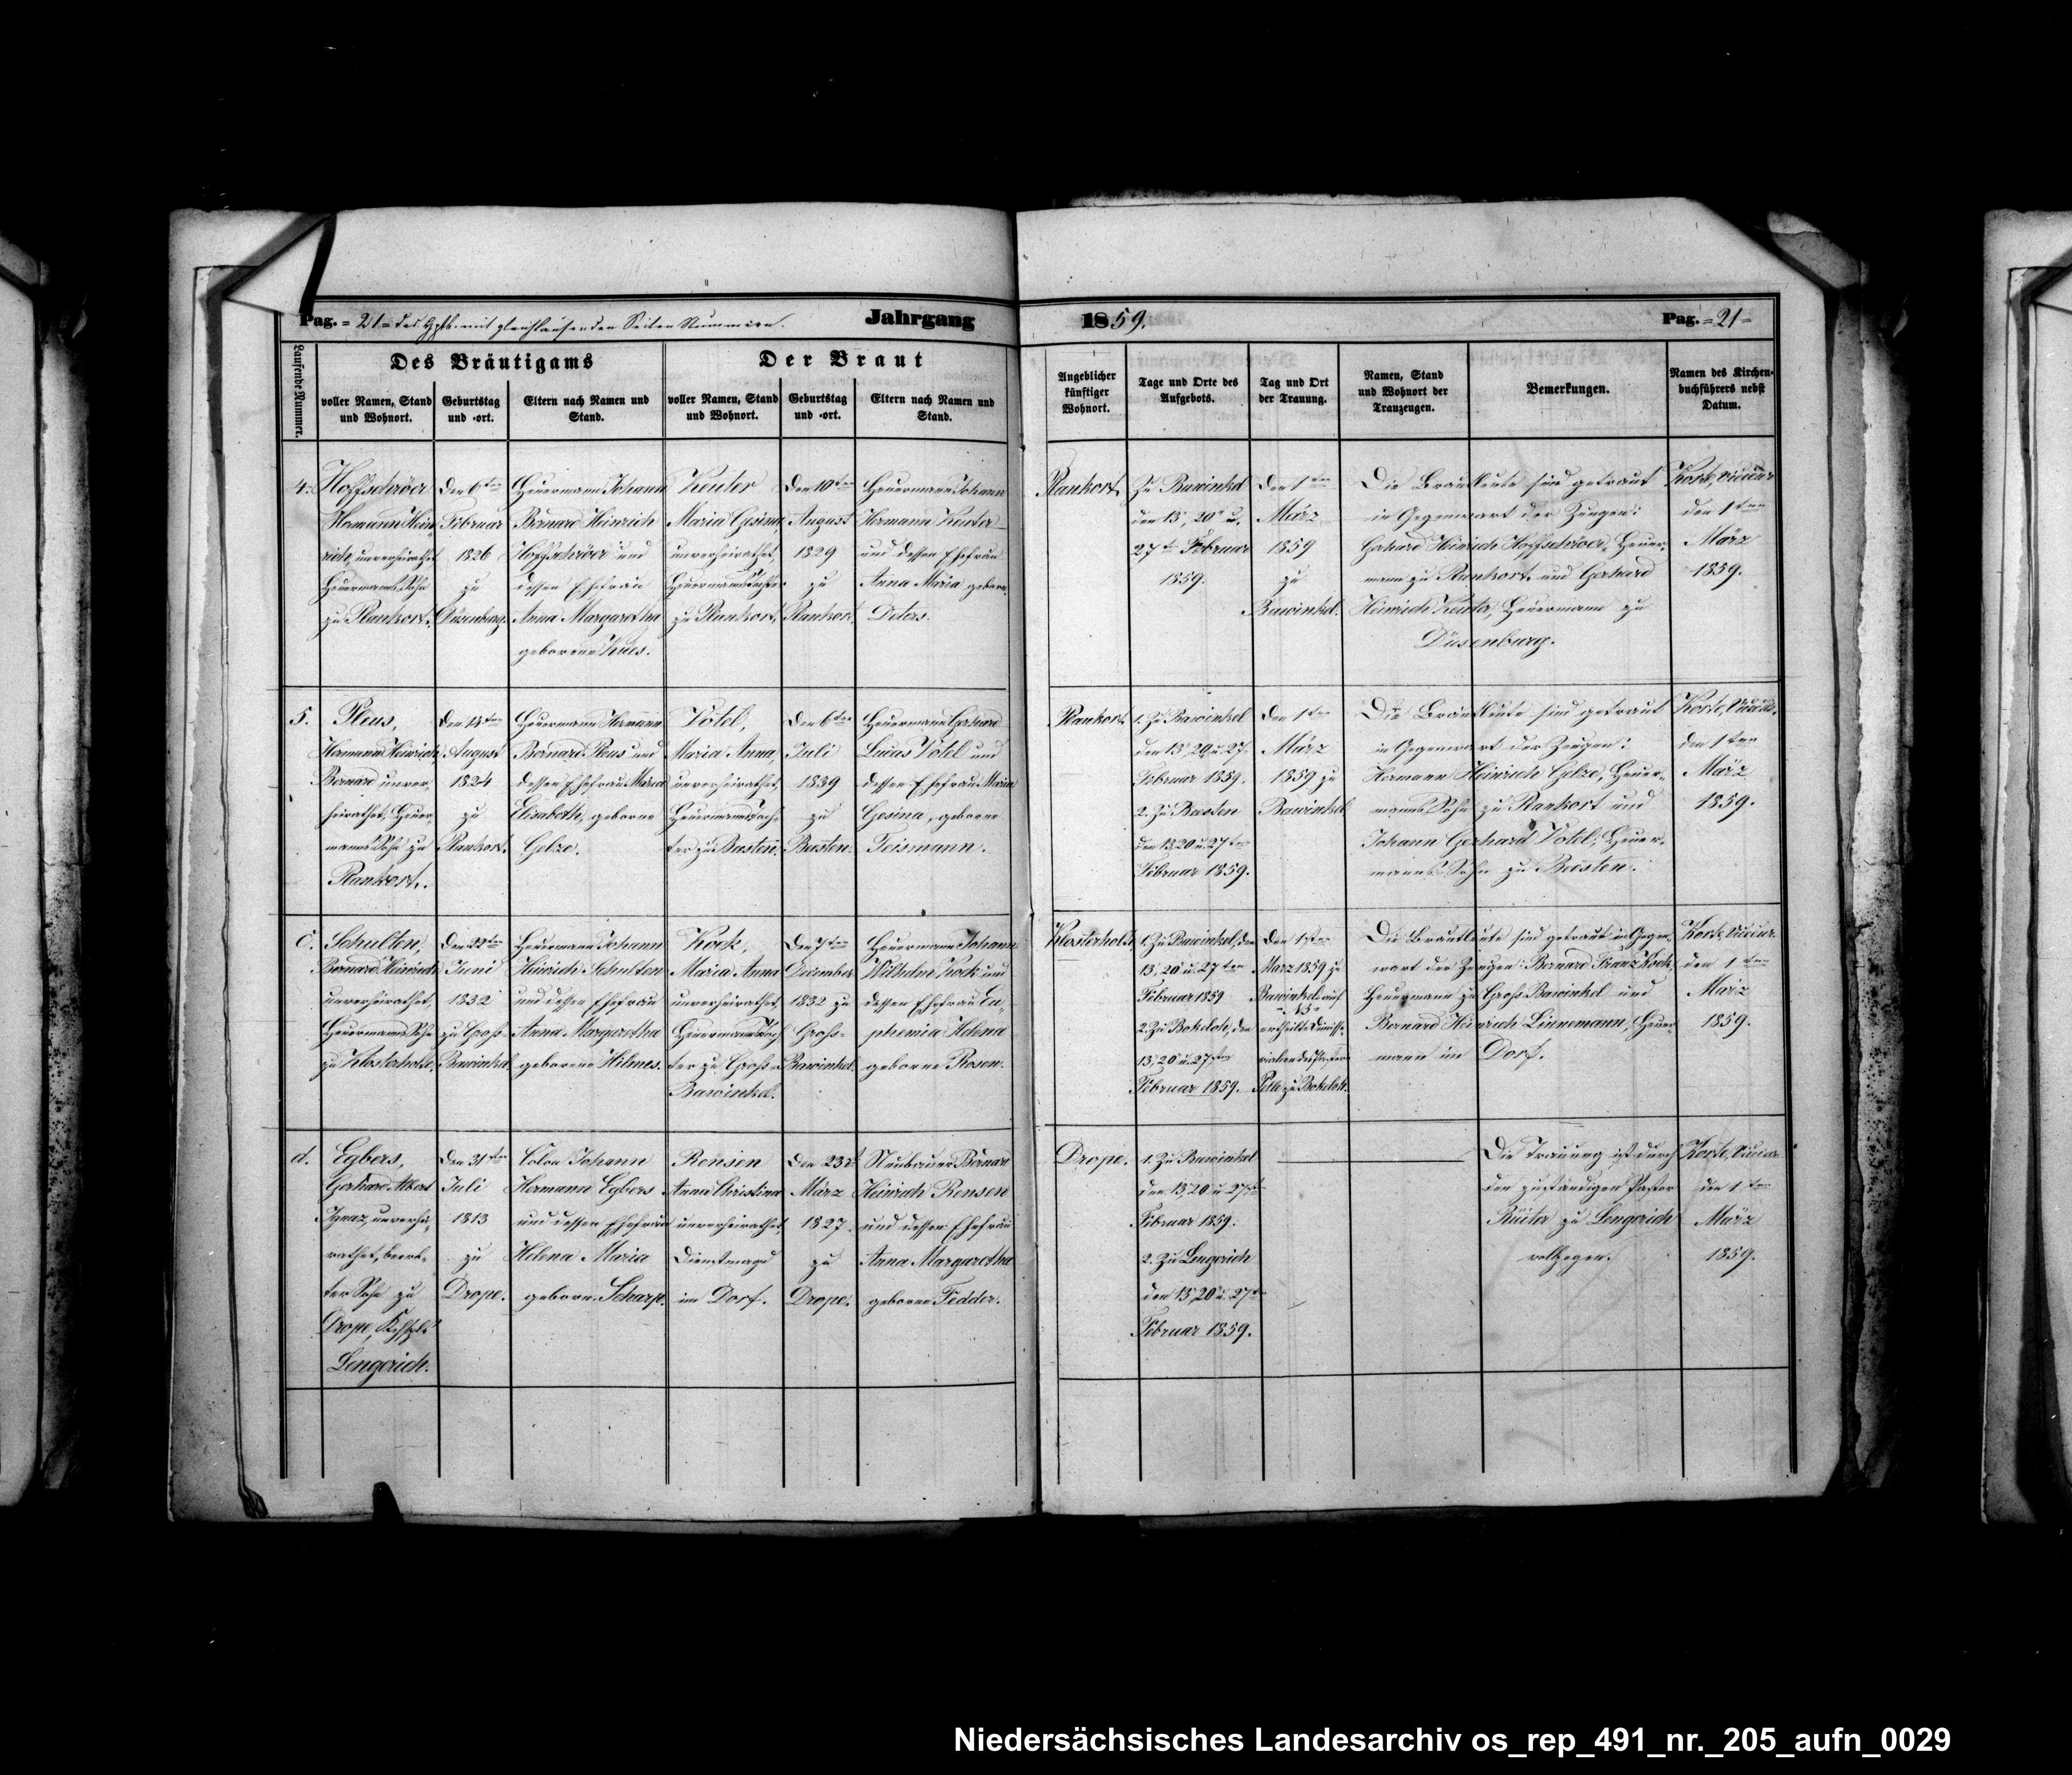 Pag. = 21 = des Hptb. mit gleichlaufenden Seiten Nummern.
Jahrgang
1859.
Pag. = 21 =
Laufende Nummer.
Des Bräutigams
voller Namen, Stand
und Wohnort.
Geburtstag
und -ort.
Eltern nach Namen und
Stand.
Der Braut
voller Namen, Stand
und Wohnort.
Geburtstag
und -ort.
Eltern nach Namen und
Stand.
Angeblicher
künftiger
Wohnort.
Tage und Orte des
Aufgebots.
Tag und Ort
der Trauung.
Namen, Stand
und Wohnort der
Trauzeugen.
Bemerkungen.
Namen des Kirchen-
buchführers nebst
Datum.
4.
Hoffschröer
Hermann Hein-
rich, unverheirathet
Heuermanns Sohn
zu Plankort.
Den 6ten
Februar
1826
zu
Düsenburg.
Heuermann Johann
Bernard Heinrich
Hoffschröer und
dessen Ehefrau
Anna Margaretha
geborene
Keuter
Maria Gesina,
unverheirathet,
Heuermanns Tochter
zu Plankort.
Den 10ten
August
1829
zu
Plankort.
Heuermann Johann
Hermann Keuter
und dessen Ehefrau
Anna Maria geborne
Deters.
Plankort.
Zu Bawinkel
den 13, 20 u.
27ten Februar
1859.
Den 1ten
März
1859
zu
Bawinkel.
Die Brautleute sind getraut
in Gegenwart der Zeugen:
Gerhard Heinrich Hoffschröer, Heuer-
mann zu Plankort und Gerhard
Heinrich Keuter, Heuermann zu
Düsenburg.
Korte, Vicecur.
den 1ten
März
1859.
5.
Pleus,
Hermann Heinrich
Bernard unver-
heirathet, Heuer-
manns Sohn zu
Plankort.
Den 14ten
August
1824
zu
Plankort.
Heuermann Hermann
Bernard Pleus und
dessen Ehefrau Maria
Elisabeth, geborne
Gelze.
Votel,
Maria Anna,
unverheirathet,
Heuermanns Toch-
ter zu Beesten.
Den 6ten
Juli
1839
zu
Beesten.
Heuermann Gerhard
Lucas Votel und
dessen Ehefrau Maria
Gesina, geborne
Teismann.
Plankort
1. Zu Bawinkel
den 13, 20 u. 27.
Februar 1859.
2. Zu Beesten
den 13, 20 u. 27ten
Februar 1859.
Den 1ten
März
1859 zu
Bawinkel
Die Brautleute sind getraut
in Gegenwart der Zeugen:
Hermann Heinrich Gelze, Heuer-
manns Sohn zu Plankort und
Johann Gerhard Votel, Heuer-
manns Sohn zu Beesten.
Korte, Vicecur.
den 1ten
März
1859.
C.
Schulten,
Bernard Heinrich
unverheirathet,
Heuermanns Sohn
zu Klosterholte.
Den 22ten
Juni
1832
zu Groß-
Bawinkel.
Heuermann Johann
Hinrich Schulten
und dessen Ehefrau
Anna Margaretha
geborene Hilmes.
Kock,
Maria Anna
unverheirathet,
Heuermanns Toch-
ter zu Groß-
Bawinkel.
Den 7ten
December
1832 zu
Groß-
Bawinkel.
Heuermann Johann
Wilhelm Kock und
dessen Ehefrau Eu-
phemia Helena
geborne Rosen.
Klosterholte
1. Zu Bawinkel, den
13, 20 u. 27ten
Februar 1859
2. Zu Bokeloh, den
13, 20 u. 27ten
Februar 1859.
Den 1sten
März 1859 zu
Bawinkel auf
ertheilte Dimiss-
orialen des Pastors
zu Bokeloh.
Die Brautleute sind getraut in Gegen-
wart der Zeugen: Bernard Franz Kock,
Heuermann zu Groß-Bawinkel und
Bernard Heinrich Linnemann, Heuer-
mann im Dorf.
Korte, Vicecur.
den 1ten
März
1859.
d.
Egbers,
Gerhard Albert
Ignaz, unverhei-
rathet, beerb-
ter Sohn zu
Drope, Kirchspls
Lengerich.
Den 31ten
Juli
1813
zu
Drope.
Colon Johann
Hermann Egbers
und dessen Ehefrau
Helena Maria
geborne Scharpe.
Rensen
Anna Christina
unverheirathet,
Dienstmagd
im Dorf.
Den 23t
März
1827
zu
Drope.
Neubauer Bernard
Heinrich Rensen
und dessen Ehefrau
Anna Margaretha
geborne Fedder.
Drope.
1. Zu Bawinkel
den 13, 20 u. 27sten
Februar 1859.
2. Zu Lengerich
den 13, 20 u. 27ten
Februar 1859.
Die Trauung ist durch
den zuständigen Pastor
Rüiter zu Lengerich
vollzogen.
Korte, Vicecur.
den 1ten
März
1859.
Niedersächsisches Landesarchiv os_rep_491_nr._205_aufn_0029